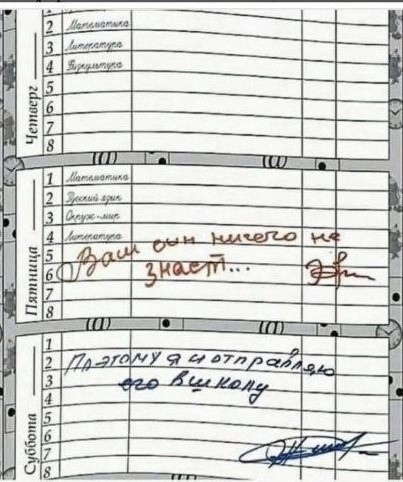 Четверг
2 Математика
3 Литература
4 Физкультура
5
6
7
8
Пятница
1 Математика
2 Русский язык
3 Окруж-мир
4 Литература
5
6
7
8
Ваш сын ничего не
знает...
Суббота
1
2
3
4
5
6
7
8
Поэтому я и отправляю
его в школу